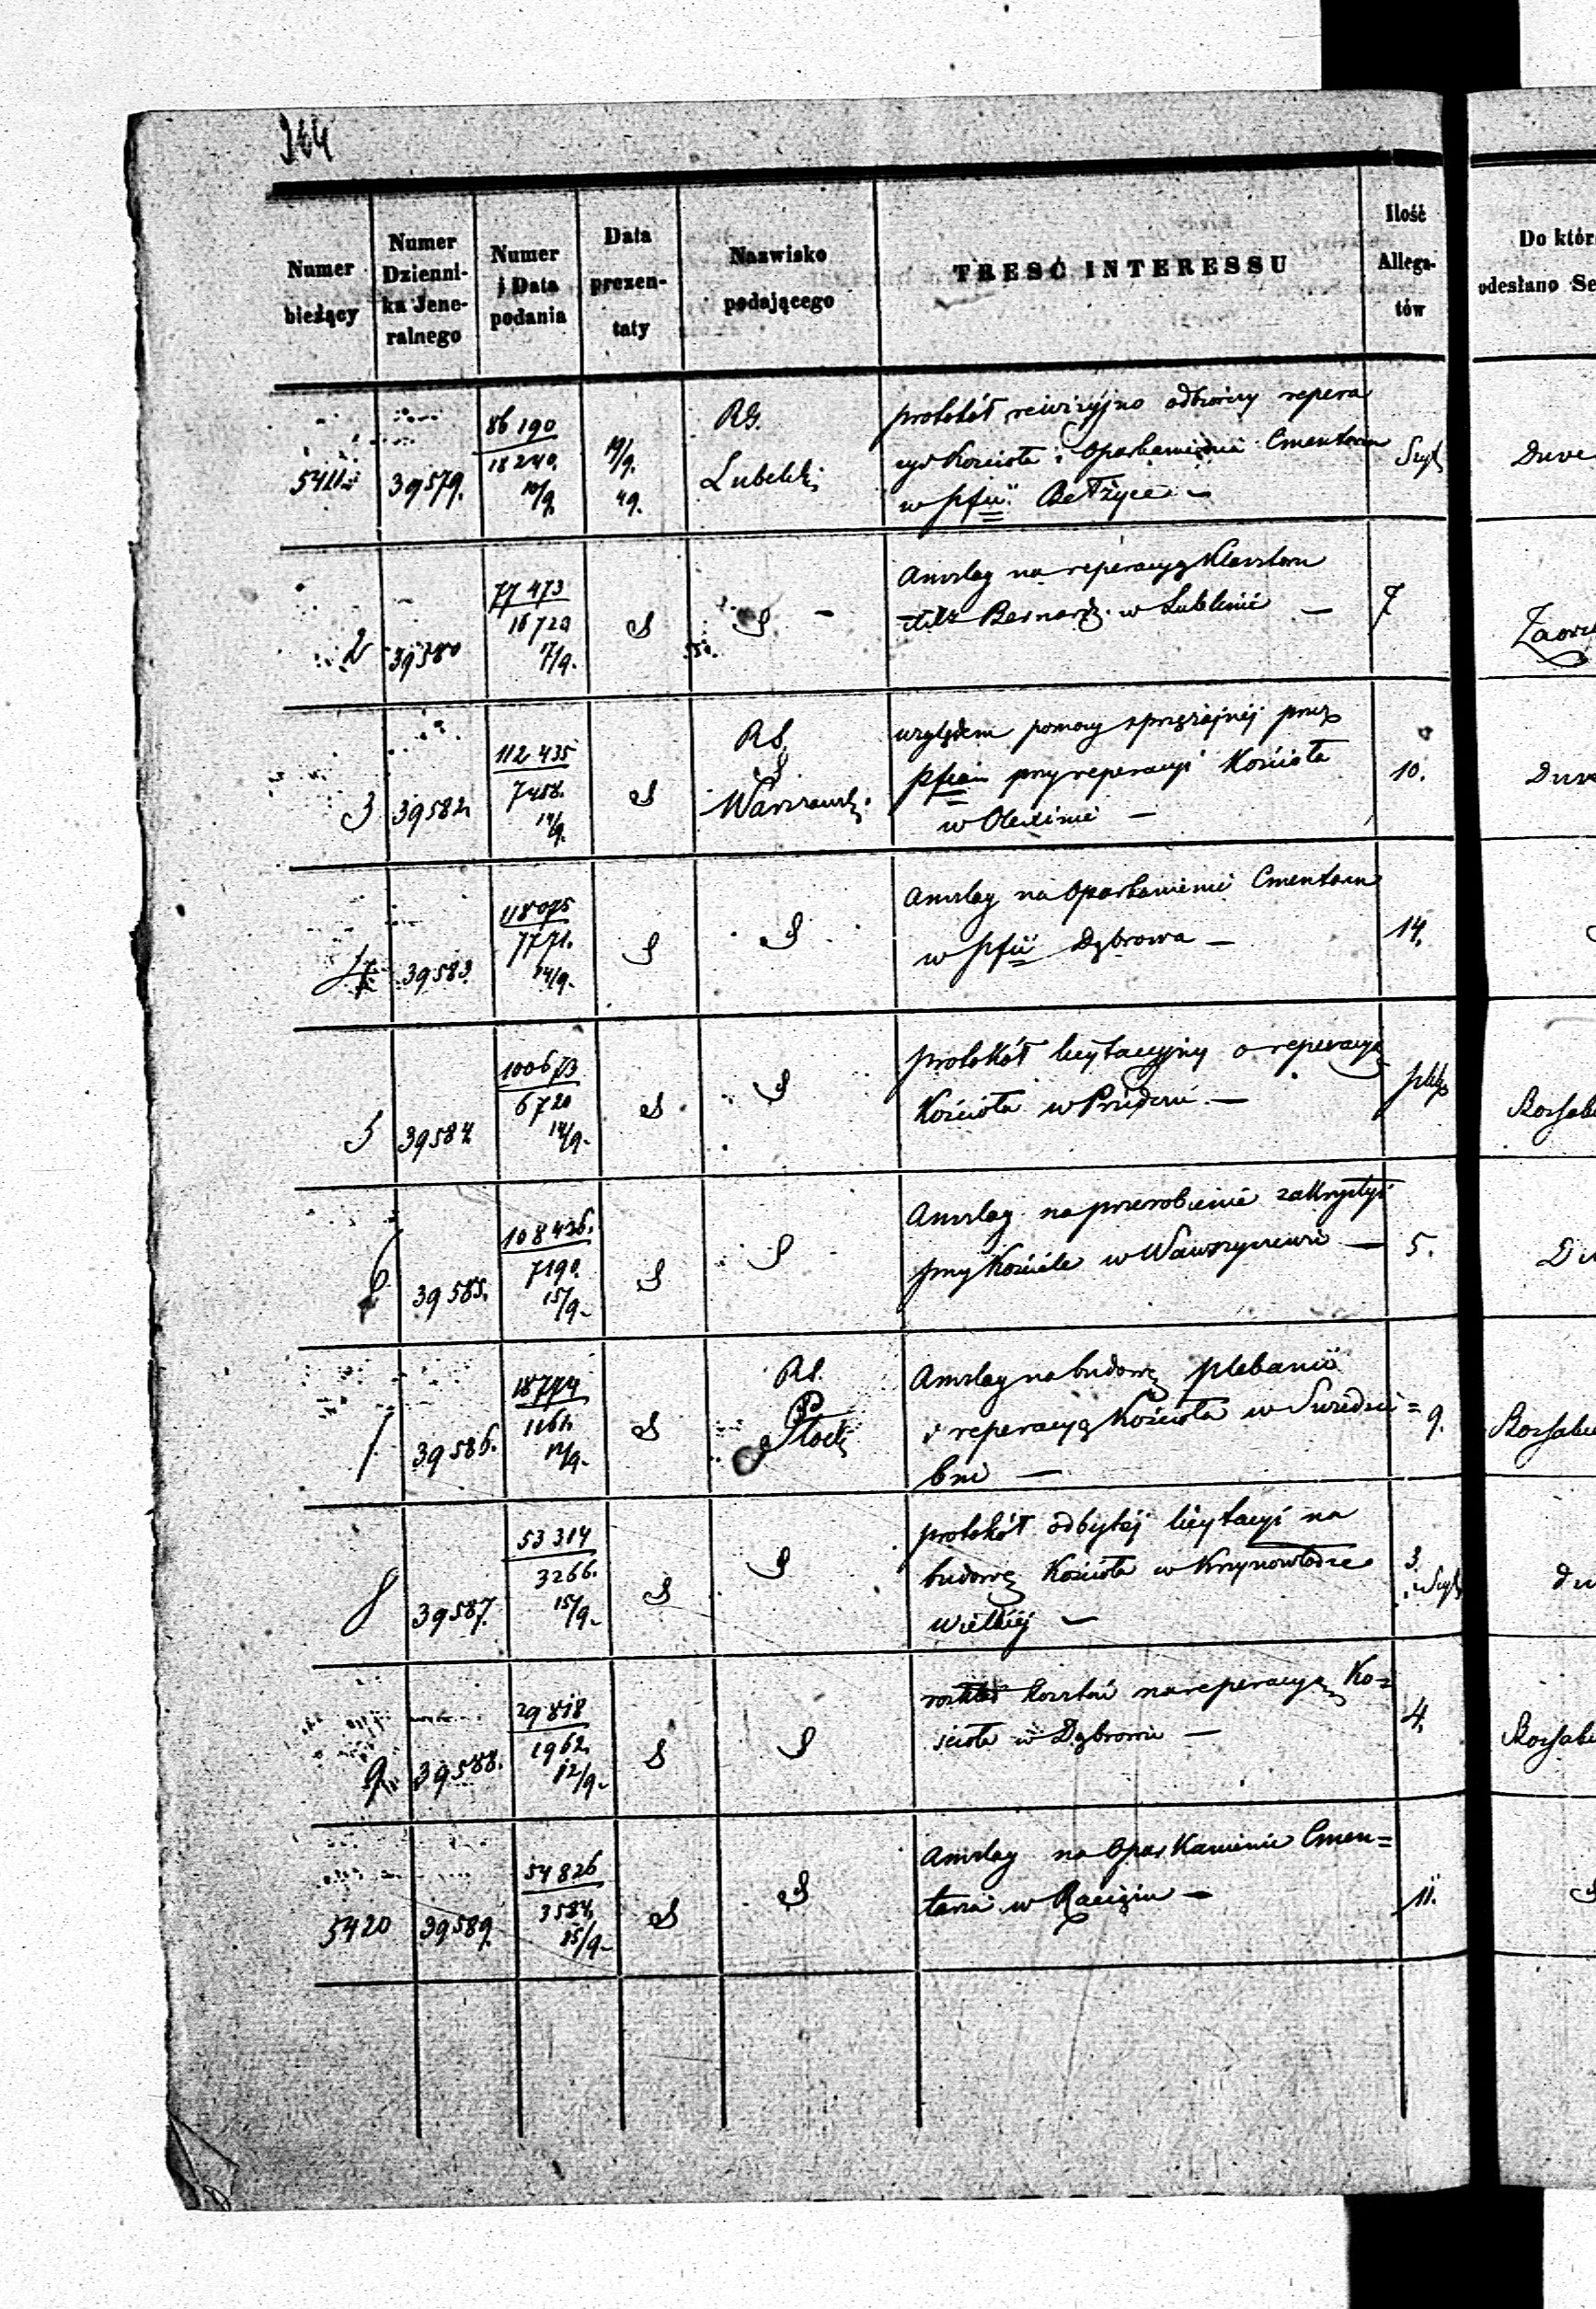 Numer bieżący
Numer Dzienni-ka Jene-ralnego
Numer i Data podania
Data prezen-taty
Nazwisko podającego
TREŚĆ INTERESSU
Ilość Allega-tów
Do któr
odesłano Se
39579.
86 190
18240.
19/9.
49.
RG.
Lubelski
protokół rewizyjno odbiorczy repera
cyi Kościoła i Oparkanienia Cmentarza
w pfii Bełżyce —
2
39580
77 473
16720
17/9.
Anszlag na reperacyą Klasztoru
Bernard. w Lublinie —
7
3
39582.
112 435
7458.
14/9.
RG.
Warszawski
względem pomocy sprzężajnej przez
pfian przy reperacyi Kościoła
w —
10.
4
39583.
118075
7771.
14/9.
Anszlag na Oparkanienie Cmentarza
w pfii Dąbrowa —
14.
5
39584
100673
6720
14/9.
protokół licytacyjny o reperacyą
Kościoła w —
6
39585.
108436.
7190.
15/9.
Anszlag na przerobienie zakrystyi
przy Kościele w Wawrzyszewie —
5.
7
39586.
18774
1161.
RG.
Płocki
Anszlag na budowę plebanii
i reperacyą Kościoła w Świedzie=
bni —
9.
8
39587.
53 314
3266.
15/9.
protokół odbytej licytacyi na
budowę Kościoła w Krzynowłodze
Wielkiej —
3.
9
39588.
29 818
1962.
12/9.
rozkład kosztów na reperacyą Ko=
ścioła w Dąbrowie —
4.
5420
39589.
54 826
3584.
15/9.
Anszlag na Oparkanienie Cmen=
tarza w Raciążu —
11.